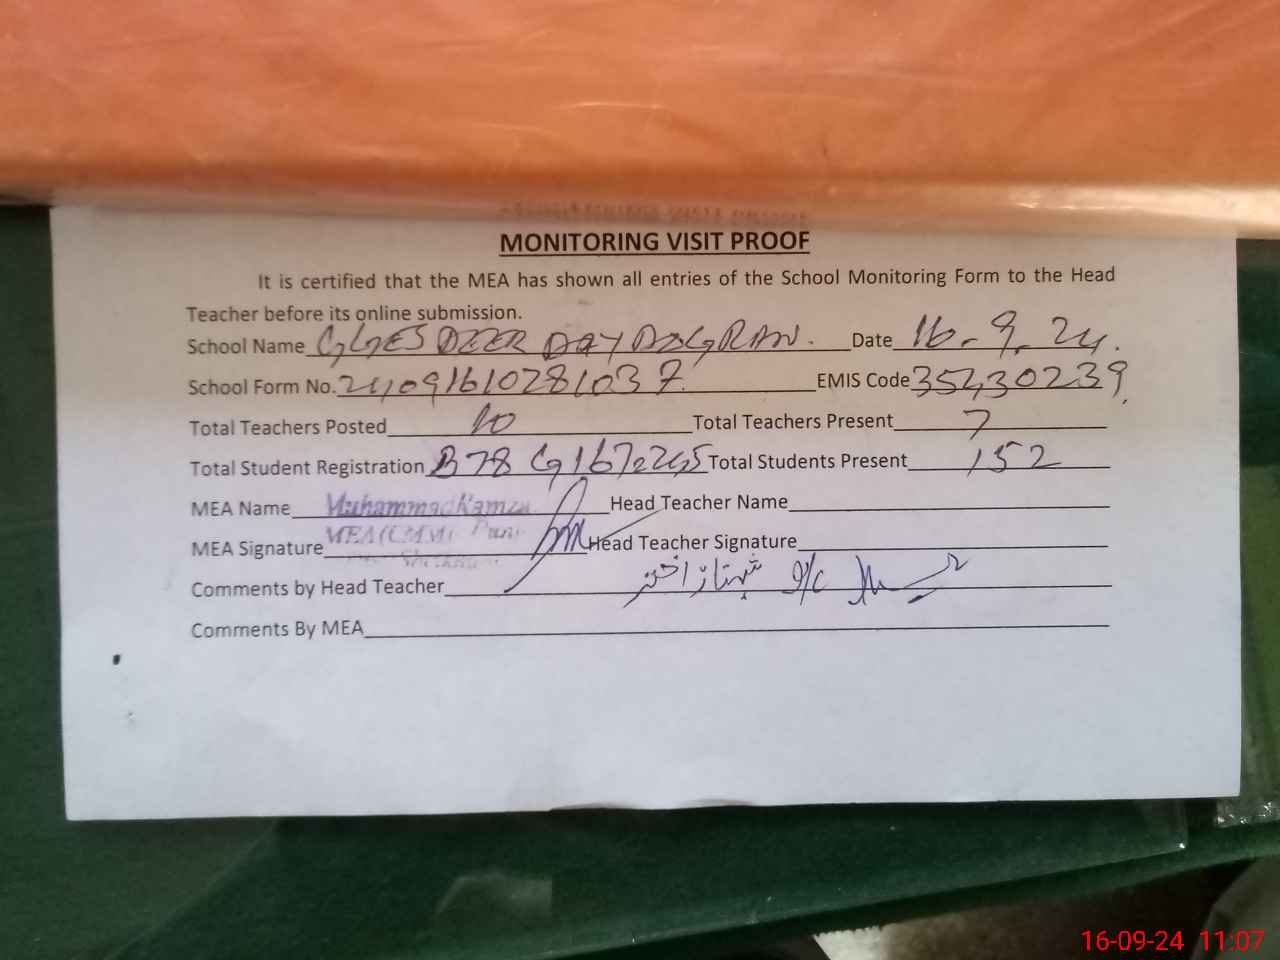 MONITORING VISIT PROOF
It is certified that the MEA has shown all entries of the School Monitoring Form to the Head
Teacher before its online submission.
School Name GGES DEER DAY Date 16-9-24.
School Form No. 24091610281037 EMIS Code 35430239
Total Teachers Posted 10 Total Teachers Present 7
Total Student Registration B78 G167=245 Total Students Present 152
MEA Name Muhammad Head Teacher Name
MEA Signature MEA(CMM) Head Teacher Signature
Comments by Head Teacher شہناز اختر O/C
Comments By MEA
16-09-24 11:07